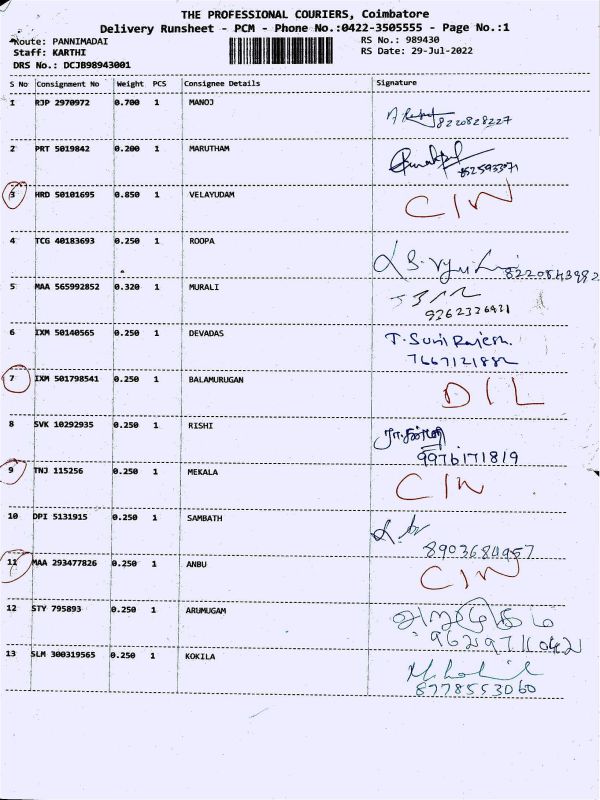 THE PROFESSIONAL COURIERS, Coimbatore
Delivery Runsheet - PCM - Phone No.:0422-3505555 - Page No.:1
Route: PANNIMADAI
RS No.: 989430
Staff: KARTHI
RS Date: 29-Jul-2022
DRS No.: DCJB98943001
S No Consignment No Weight PCS Consignee Details Signature
1 RJP 2970972 0.700 1 MANOJ
8220828227
2 PRT 5019842 0.200 1 MARUTHAM
3 HRD 50101695 0.850 1 VELAYUDAM CIN
4 TCG 40183693 0.250 1 ROOPA
8220843982
5 MAA 565992852 0.320 1 MURALI
9262326431
6 IXM 50140565 0.250 1 DEVADAS T. Suni Rajesh.
7667121882
7 IXM 501798541 0.250 1 BALAMURUGAN DIL
8 SVK 10292935 0.250 1 RISHI
9976171819
9 TNJ 115256 0.250 1 MEKALA CIN
10 DPI 5131915 0.250 1 SAMBATH
8903684957
11 MAA 293477826 0.250 1 ANBU CIN
12 STY 795893 0.250 1 ARUMUGAM
13 SLM 300319565 0.250 1 KOKILA
8778553060